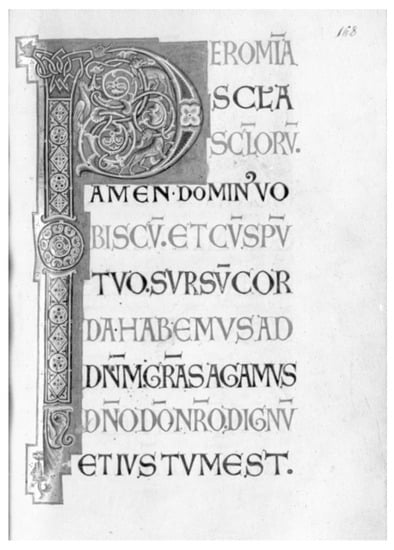 168
PEROMĪA
SCLA
SCLORV̄.
AMEN·DOMIN'VO
BISCV̄.ETCV̄SPV̄
TVO.SVRSV̄COR
DA·HABEMVSAD
DN̄M.GR̄ASAGAMVS
DN̄O.DŌNR̄O.DIGNV̄
ETIVSTVMEST.